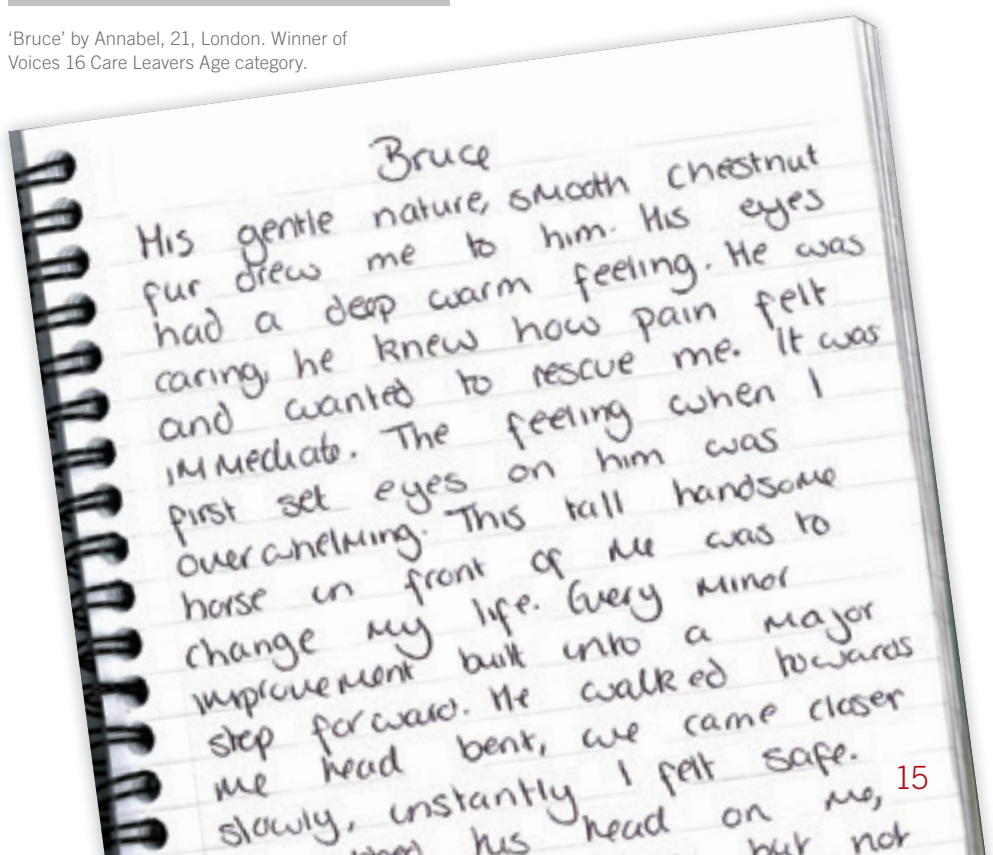 ‘Bruce’ by Annabel, 21, London. Winner of
Voices 16 Care Leavers Age category.
Bruce
His gentle nature, smooth chestnut
fur drew me to him. His eyes
had a deep warm feeling. He was
caring, he knew how pain felt
and wanted to rescue me. It was
immediate. The feeling when I
first set eyes on him was
overwhelming. This tall handsome
horse in front of me was to
change my life. Every minor
improvement built into a major
step forward. He walked towards
me head bent, we came closer
slowly, instantly I felt safe.
his head on me,
but not
15